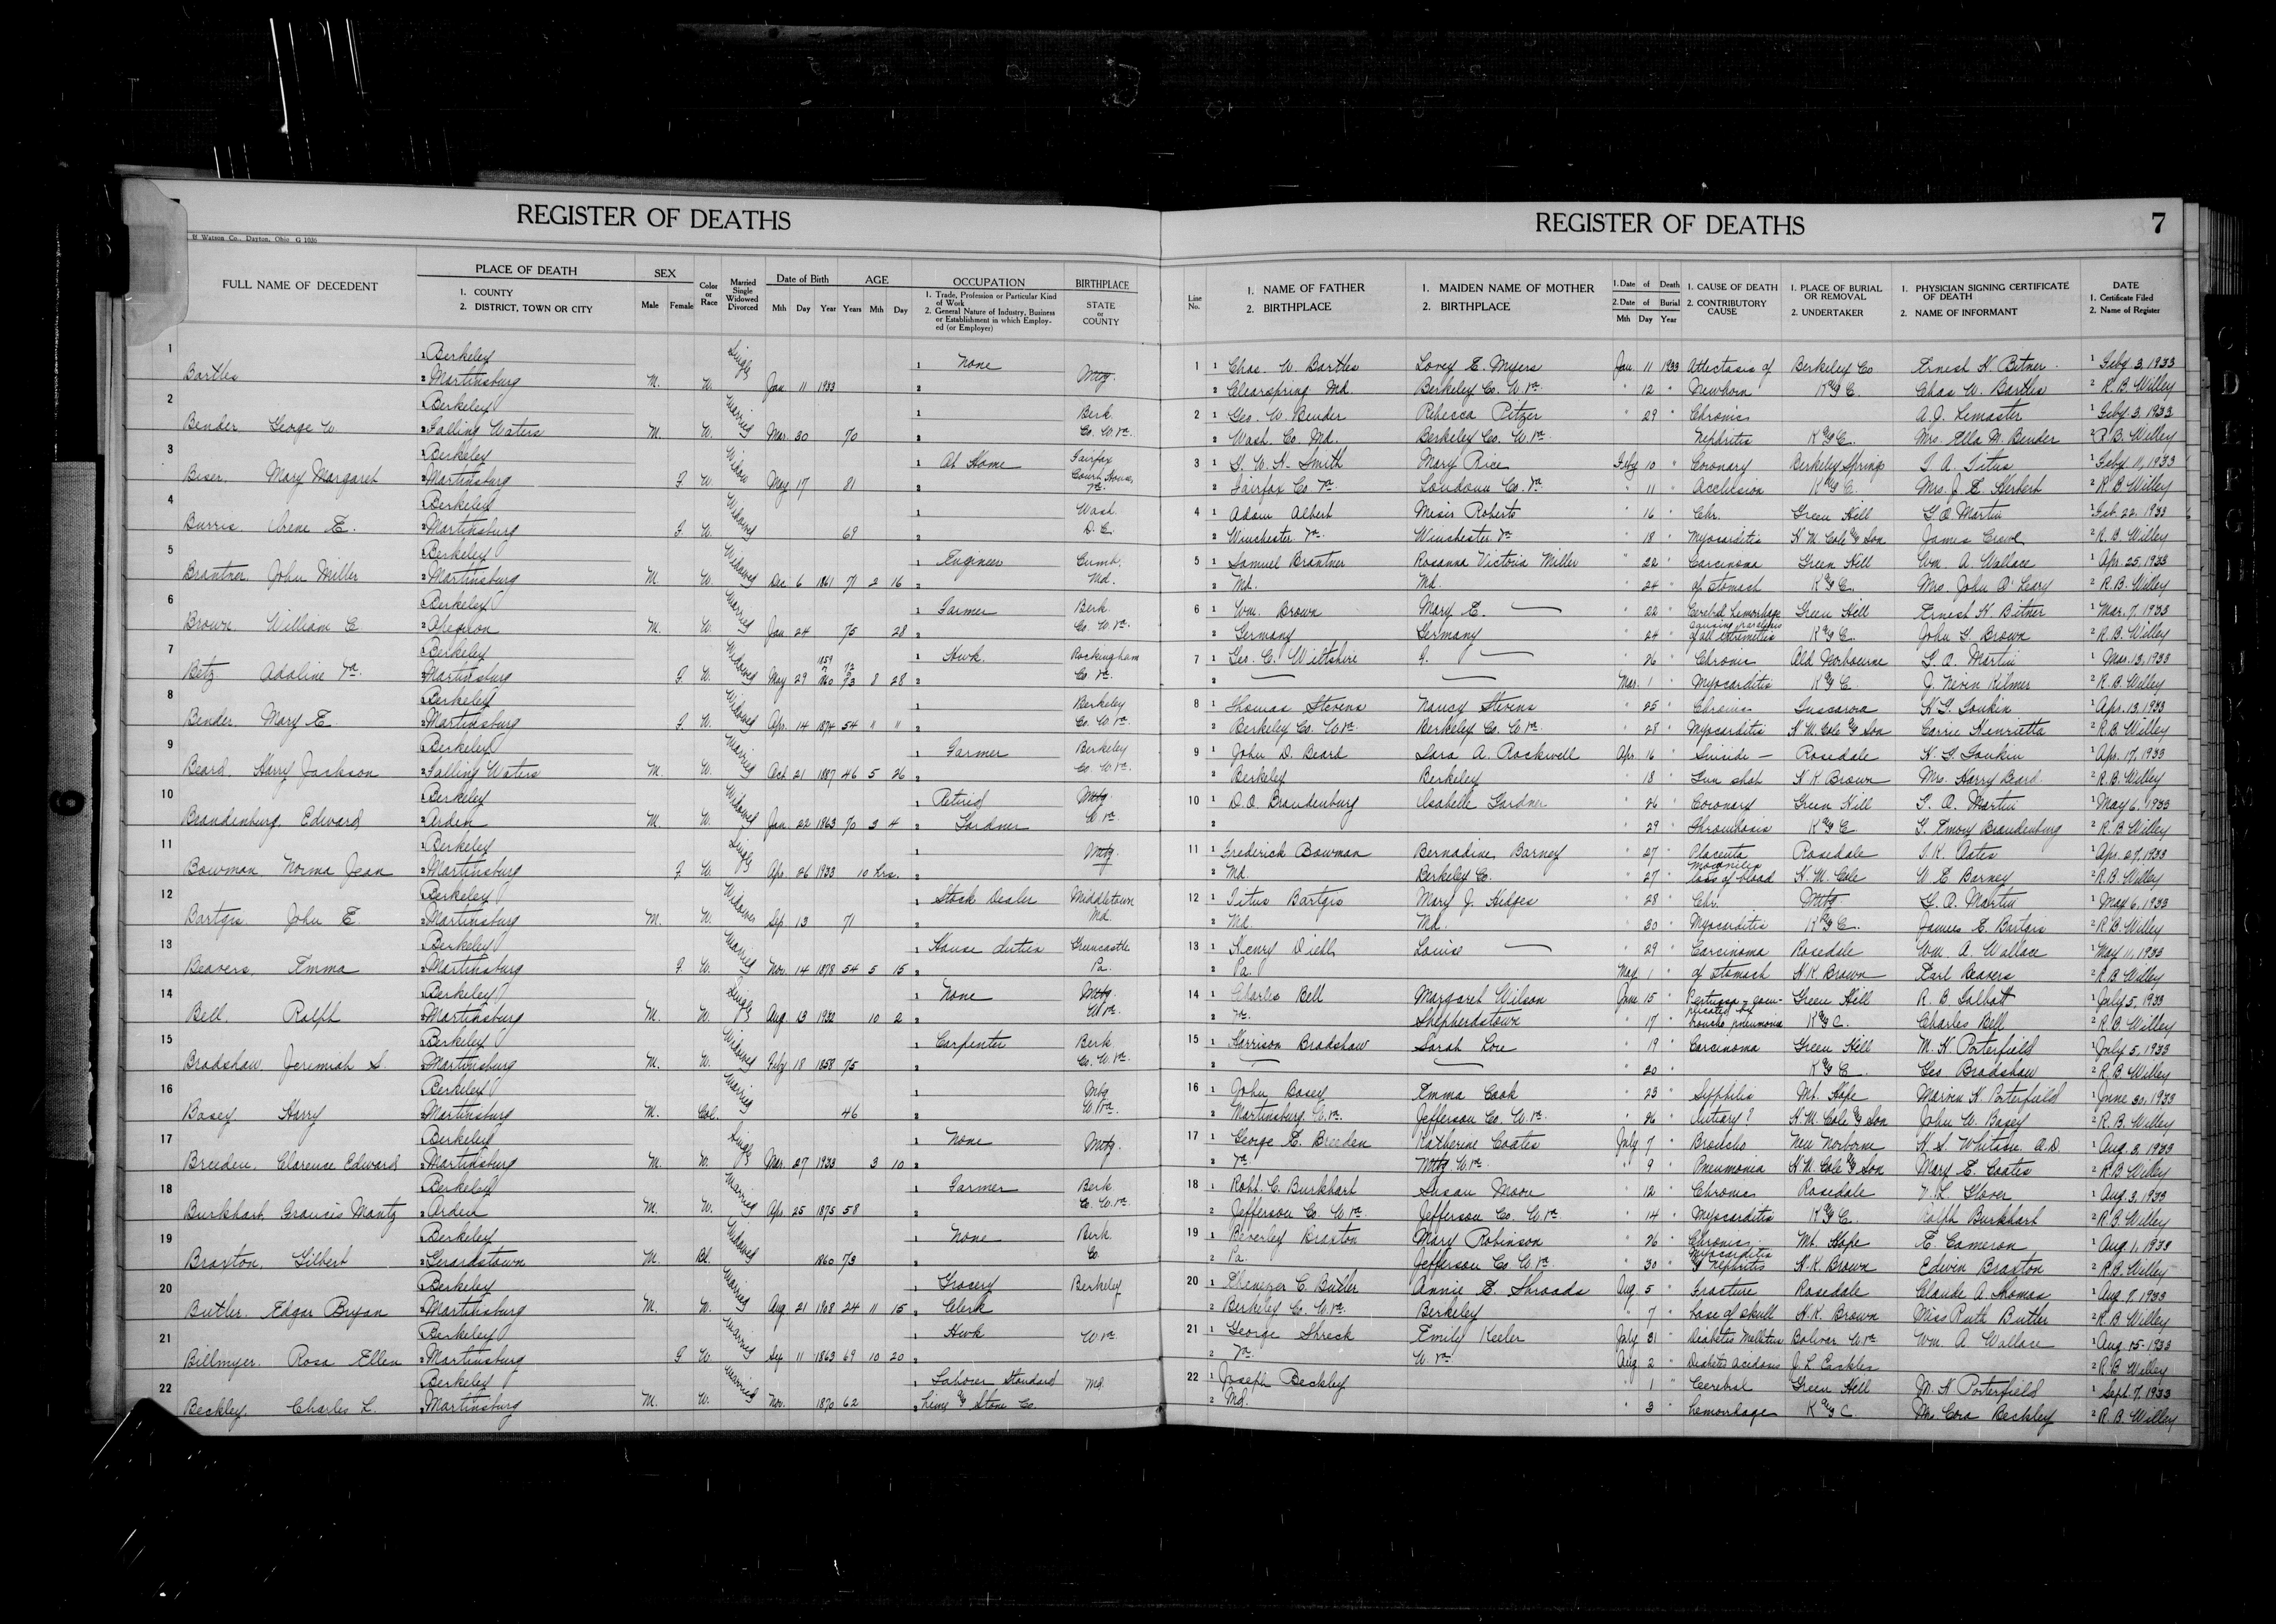 REGISTER OF DEATHS
Watson Co., Dayton, Ohio G 1036
FULL NAME OF DECEDENT
PLACE OF DEATH
1. COUNTY
2. DISTRICT, TOWN OR CITY
SEX
Male Female
Color or Race
Married Single Widowed Divorced
Date of Birth
Mth Day Year
AGE
Years Mth Day
OCCUPATION
1. Trade, Profession or Particular Kind of Work
2. General Nature of Industry, Business or Establishment in which Employed (or Employer)
BIRTHPLACE
STATE or COUNTY
1 1 Berkeley Single 1 None
Bartles 2 Martinsburg M. W. Jan 11 1933 2 Mtbg.
2 1 Berkeley Married 1 Berk
Bender George W. 2 Falling Waters M. W. Mar. 30 70 2 Co. W. Va.
3 1 Berkeley Widow 1 At Home Fairfax
Biser, Mary Margaret 2 Martinsburg F. W. May 17 81 2 Court House, Va.
4 1 Berkeley Widowed 1 Wash.
Burris Irene E. 2 Martinsburg F. W. 69 2 D. C.
5 1 Berkeley Widowed 1 Engineer Cumb.
Brantner, John Miller 2 Martinsburg M. W. Dec 6 1861 71 2 16 2 Md.
6 1 Berkeley Married 1 Farmer Berk.
Brown, William C 2 M. W. Jan 24 75 28 2 Co. W. Va.
7 1 Berkeley Widowed 1859 72 1 Hwk. Rockingham
Betz Adaline Va. 2 Martinsburg F. W. May 29 1860 73 8 28 2 Co. Va.
8 1 Berkeley Widowed 1 Berkeley
Bender, Mary E. 2 Martinsburg F. W. Apr. 14 1874 54 " " 2 Co. W. Va.
9 1 Berkeley Married 1 Farmer Berkeley
Beard, Harry Jackson 2 Falling Waters M. W. Oct 21 1887 46 5 26 2 Co. W. Va.
10 1 Berkeley Widowed 1 Retired Mtbg.
Brandenburg, Edward 2 Arden M. W. Jan. 22 1863 70 3 4 2 Gardner W Va.
11 1 Berkeley Single 1 Mtbg.
Bowman Norma Jean 2 Martinsburg F. W. Apr. 26 1933 10 hrs. 2
12 1 Berkeley Widower 1 Stock Dealer Middletown
Bartgis John E 2 Martinsburg M. W. Sep 13 71 2 Md.
13 1 Berkeley Married 1 House duties Greencastle
Beavers, Emma 2 Martinsburg F. W. Nov. 14 1878 54 5 15 2 Pa.
14 1 Berkeley Single 1 None Mtbg.
Bell, Ralph 2 Martinsburg M. W. Aug. 13 1932 10 2 2 W Va.
15 1 Berkeley Widowed 1 Carpenter Berk
Bradshaw Jeremiah S. 2 Martinsburg M. W. Feby 18 1858 75 2 Co. W. Va.
16 1 Berkeley Married 1 Mtbg
Basey Harry 2 Martinsburg M. Col. 46 2 W. Va.
17 1 Berkeley Single 1 None Mtbg.
Breeden, Clarence Edward 2 Martinsburg M. W. Mar. 27 1933 3 10 2
18 1 Berkeley Married 1 Farmer Berk
Burkhart, Francis Mantz 2 Arden M. W. Apr. 25 1875 58 2 Co. W. Va.
19 1 Berkeley Widowed 1 None Berk.
Braxton, Gilbert 2 Gerardstown M. Bl. 1860 73 2 Co
20 1 Berkeley Married 1 Grocery Berkeley
Butler, Edgar Bryan 2 Martinsburg M. W. Aug 21 1908 24 11 15 2 Clerk
21 1 Berkeley Married 1 Hwk W. Va
Billmyer, Rosa Ellen 2 Martinsburg F W. Sep 11 1863 69 10 20 2
22 1 Berkeley Married 1 Laborer Standard Md.
Beckley, Charles L. 2 Martinsburg M. W. Nov. 1870 62 2 Lime & Stone Co.
REGISTER OF DEATHS 7
Line No.
1. NAME OF FATHER
2. BIRTHPLACE
1. MAIDEN NAME OF MOTHER
2. BIRTHPLACE
1. Date of Death
2. Date of Burial
Mth Day Year
1. CAUSE OF DEATH
2. CONTRIBUTORY CAUSE
1. PLACE OF BURIAL OR REMOVAL
2. UNDERTAKER
1. PHYSICIAN SIGNING CERTIFICATE OF DEATH
2. NAME OF INFORMANT
DATE
1. Certificate Filed
2. Name of Register
1 1 Chas. W. Bartles Lovey E. Myers Jan 11 1933 Atlectasis of Berkeley Co Ernest H. Bitner 1 Feby. 3, 1933
2 Clearspring Md. Berkeley Co. W. Va. " 12 " Newborn K & C Chas W. Bartles 2 R. B. Willey
2 1 Geo. W. Bender Rebecca Pitzer " 29 " Chronic A. J. Lemaster 1 Feby. 3, 1933
2 Wash. Co. Md. Berkeley Co. W. Va. Nephritis K & C. Mrs. Ella M. Bender 2 R. B. Willey
3 1 G. W. H. Smith Mary Rice Feby 10 " Coronary Berkeley Springs T A. Titus 1 Feby 11, 1933
2 Fairfax Co Va. Loudoun Co. Va. " 11 " Acclusion K & C. Mrs. J. E. Herbert 2 R. B. Willey
4 1 Adam Albert Roberts " 16 " Chr. Green Hill G. O. Martin 1 Feb. 22, 1933
2 Winchester Va. Winchester Va " 18 " Myocarditis H. M. Cole & Son James 2 R. B. Willey
5 1 Samuel Brantner Rosanna Victoria Miller " 22 " Carcinoma Green Hill Wm. A. Wallace 1 Apr. 25, 1933
2 Md. Md. " 24 " of stomach K & C. Mrs. John O'Leary 2 R. B. Willey
6 1 Wm. Brown Mary E. — " 22 " Cerebral Hemorrhage Green Hill Ernest H Bitner 1 Mar. 7, 1933
2 Germany Germany " 24 " causing paralysis of all extremities K & C. John G. Brown 2 R. B. Willey
7 1 Geo. C. Wiltshire — " 26 " Chronic Old Norbourne G. O. Martin 1 Mar. 13, 1933
2 — — Mar. 1 " Myocarditis K & C. J. Nevin Kilmer 2 R. B. Willey
8 1 Thomas Stevens Nancy Stevens " 25 " Chronic Tuscarora H. G. Tonkin 1 Apr. 13, 1933
2 Berkeley Co. W. Va. Berkeley Co. W. Va. " 28 " Myocarditis H. M. Cole & Son Carrie Henrietta 2 R. B. Willey
9 1 John D. Beard Sara A. Rockwell Apr. 16 " Suicide — Rosedale H. G. Tonkin 1 Apr. 17, 1933
2 Berkeley Berkeley " 18 " Gun shot H. K. Brown Mrs. Harry Beard. 2 R. B. Willey
10 1 D. O. Brandenburg Isabelle Gardner " 26 " Coronary Green Hill G. O. Martin 1 May 6, 1933
2 " 29 " Thrombosis K & C G. Emory Brandenburg 2 R. B. Willey
11 1 Frederick Bowman Bernadine Barney " 27 " Placenta Rosedale T. K. Oates 1 Apr. 27, 1933
2 Md. Berkeley Co. " 27 " loss of blood H. M. Cole W. E Barney 2 R. B. Willey
12 1 Titus Bartgis Mary J. Hedges " 28 " Chr. Mtbg G. O. Martin 1 May 6, 1933
2 Md. Md. " 30 " Myocarditis K & C. James E. Bartgis 2 R. B. Willey
13 1 Henry Diehl Louise — " 29 " Carcinoma Rosedale Wm. A. Wallace 1 May 11, 1933
2 Pa. May 1 " of stomach H. K. Brown Earl Beavers 2 R. B. Willey
14 1 Charles Bell Margaret Wilson June 15 " Pertussis - complicated by Green Hill R. B. Talbott 1 July 5, 1933
2 Va. Shepherdstown " 17 " broncho pneumonia K & C. Charles Bell 2 R. B. Willey
15 1 Harrison Bradshaw Sarah " 19 " Carcinoma Green Hill M. H. Porterfield 1 July 5, 1933
2 — — " 20 " K & C Geo Bradshaw 2 R. B. Willey
16 1 John Basey Emma Cook " 23 " Syphilis Mt. Hope Marvin H. Porterfield 1 June 30, 1933
2 Martinsburg W. Va. Jefferson Co. W. Va. " 26 " H. M. Cole & Son John W. Basey 2 R. B. Willey
17 1 George E. Breeden Katherine Coates July 7 " Broncho New Norborne 1 Aug. 3, 1933
2 Va. Mtbg W. Va. " 9 " Pneumonia H. M. Cole & Son Mary E. Coates 2 R. B. Willey
18 1 Robt. C. Burkhart Susan Moore " 12 " Chronic Rosedale V. L. Glover 1 Aug. 3, 1933
2 Jefferson Co. W. Va. Jefferson Co. W. Va. " 14 " Myocarditis K & C. Ralph Burkhart 2 R. B. Willey
19 1 Beverley Braxton Mary Robinson " 26 " Chronic Mt. Hope E. Cameron 1 Aug. 1, 1933
2 Pa. Jefferson Co W. Va. " 30 " Myocarditis & Nephritis H. K. Brown Edwin Braxton 2 R. B. Willey
20 1 Ebenezer C. Butler Annie E. Shroads Aug. 5 " Fracture Rosedale Claude A Thomas 1 Aug. 7, 1933
2 Berkeley Co. W. Va. Berkeley " 7 " base of skull H. K. Brown Miss Ruth Butler 2 R. B. Willey
21 1 George Shreck Emily Keeler July 31 " Diabetes Mellitus Bolivar W. Va. Wm. A Wallace 1 Aug 15- 1933
2 Va. W Va. Aug 2 " Diabetic acidosis J. L. 2 R. B. Willey
22 1 Joseph Beckley " 1 " Cerebral Green Hill M. H Porterfield 1 Sept. 7, 1933
2 Md. " 3 " hemorrhage K & C. Mrs Cora Beckley 2 R. B. Willey